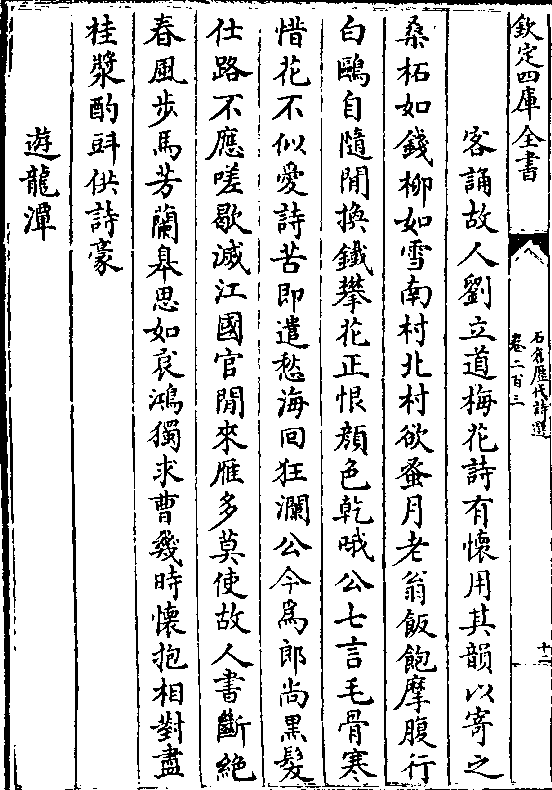 欽定四庫全書
石倉歷代詩選
卷二百三
十二
客誦故人劉立道梅花詩有懷用其韻以寄之
桑柘如錢柳如雪南村北村欲蚕月老翁飯飽摩腹行
白鷗自隨閒換鐵攀花正恨顔色乾哦公七言毛骨寒
惜花不似愛詩苦即遣愁海回狂瀾公今為郎尚黒髮
仕路不應嗟歇滅江國官閒來雁多莫使故人書斷絶
春風步馬芳蘭臯思如哀鴻獨求曹幾時懷抱相對盡
桂漿酌斝供詩豪
遊龍潭